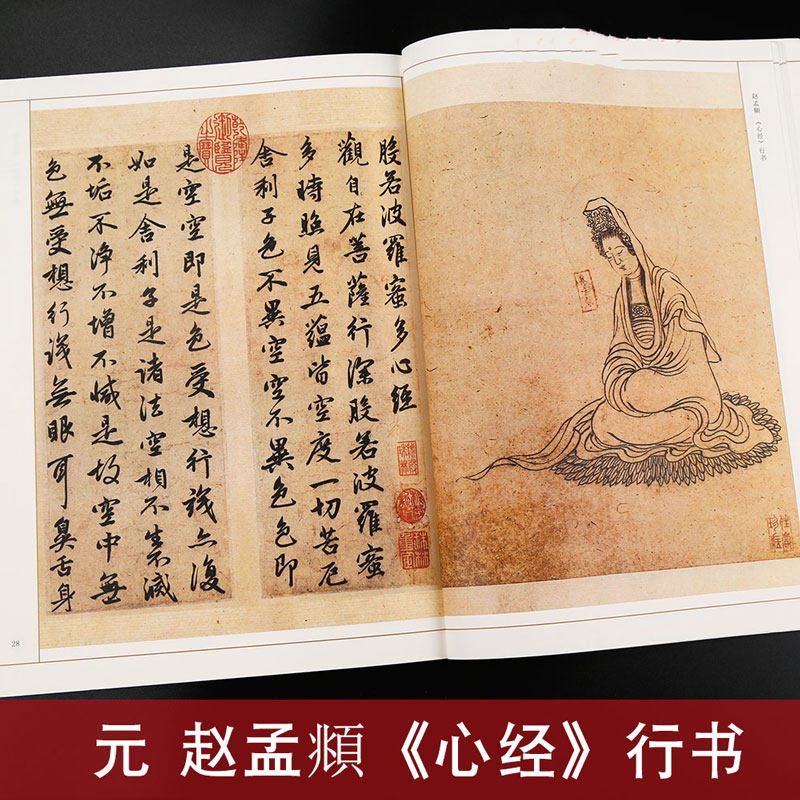 赵孟頫《心经》行书
般若波羅蜜多心經
觀自在菩薩行深般若波羅蜜
多時照見五蘊皆空度一切苦厄
舍利子色不異空空不異色色即
是空空即是色受想行識亦復
如是舍利子是諸法空相不生不滅
不垢不淨不增不減是故空中無
色無受想行識無眼耳鼻舌身
28
元 赵孟頫《心经》行书